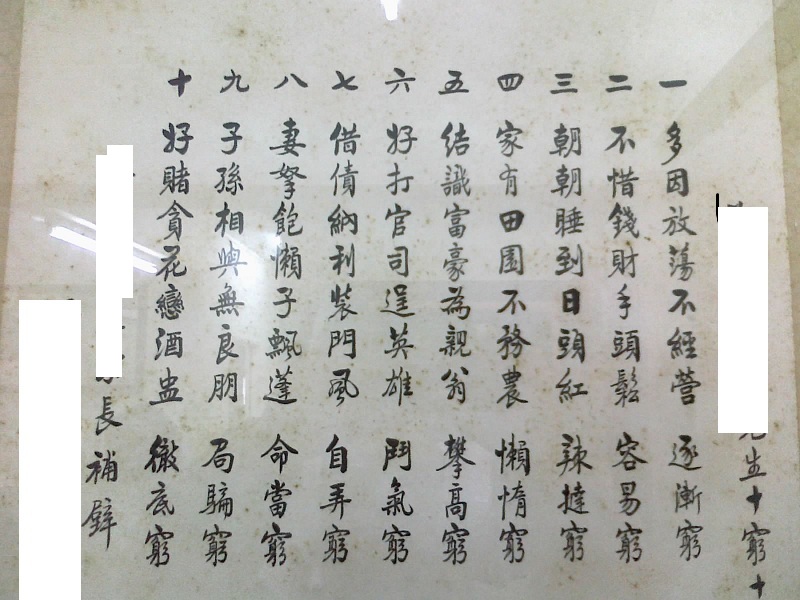 先生十窮十
一 多因放蕩不經營 逐漸窮
二 不惜錢財手頭鬆 容易窮
三 朝朝睡到日頭紅 辣撻窮
四 家有田園不務農 懶惰窮
五 結識富豪為親翁 攀高窮
六 好打官司逞英雄 鬥氣窮
七 借債納利裝門風 自弄窮
八 妻孥飽懶子飄蓬 命當窮
九 子孫相與無良朋 局騙窮
十 好賭貪花戀酒盅 徹底窮
長補壁